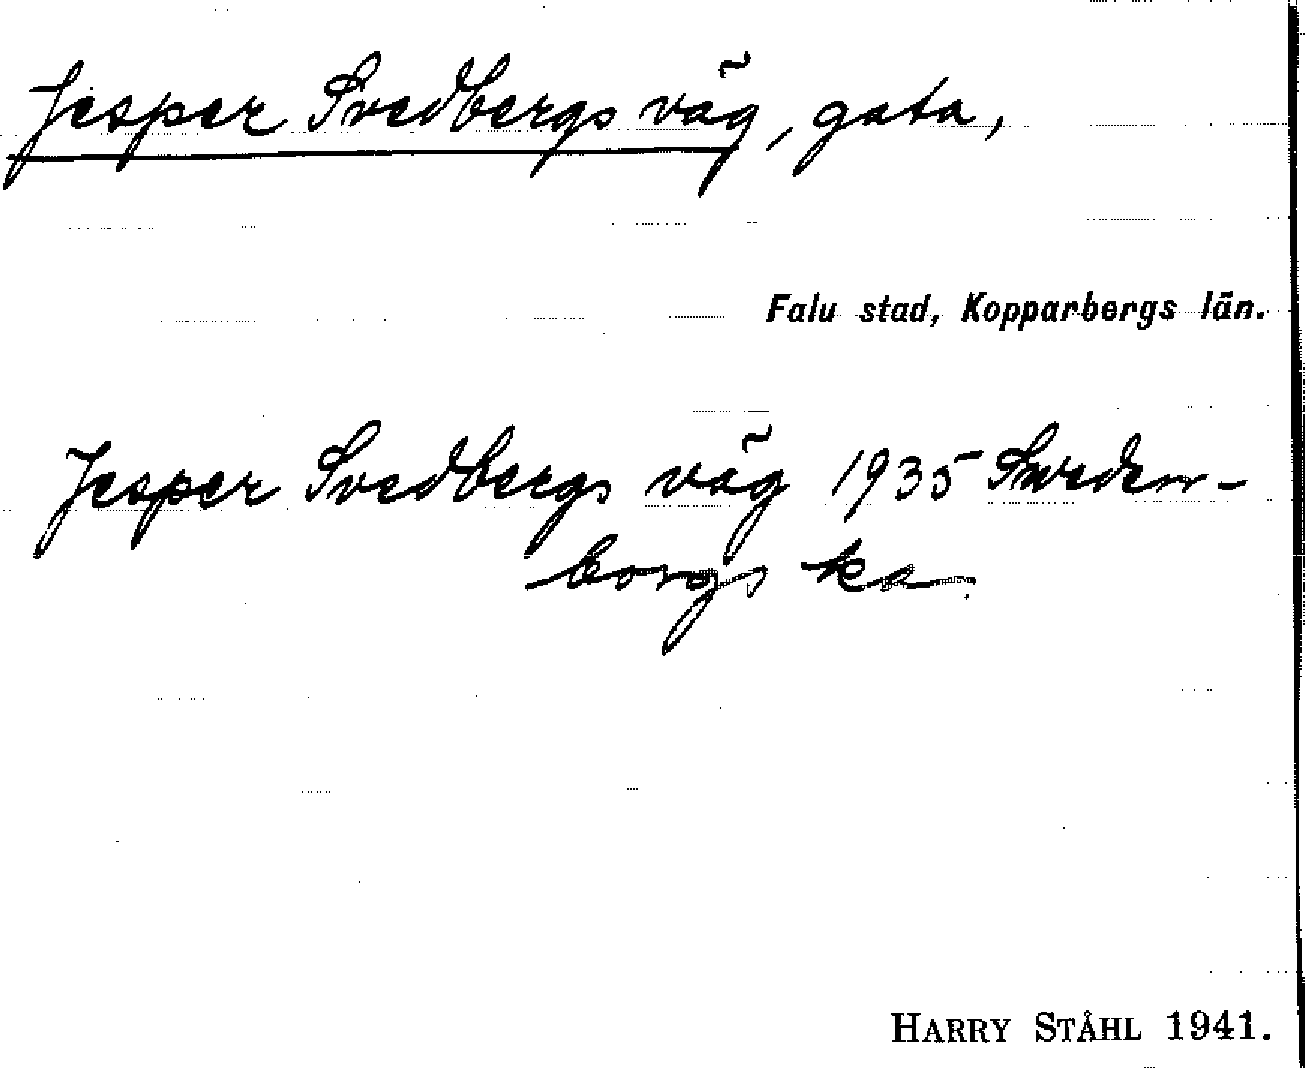 Jesper Svedbergs väg, gata,
Falu stad, Kopparbergs län.
Jesper Svedbergs väg 1935 Sweden-
borgs ka
HARRY STÅHL 1941.